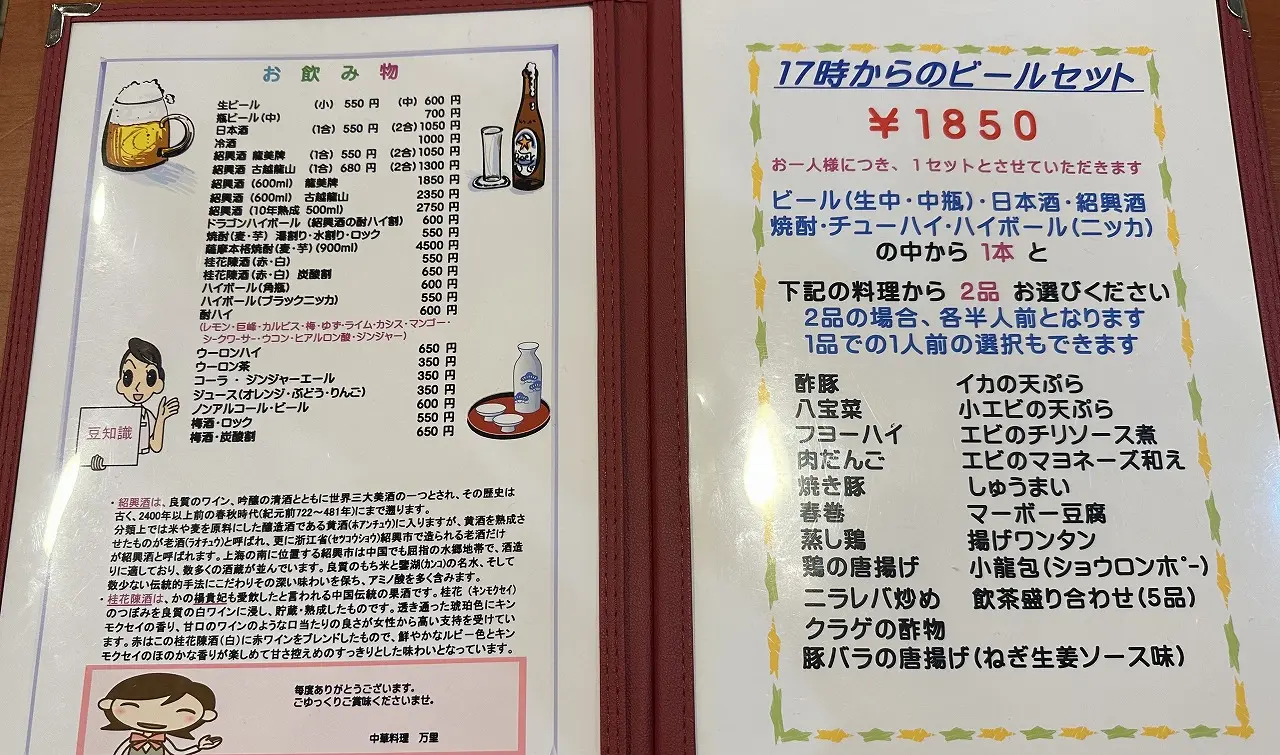 お飲み物
生ビール (小) 550 円 (中) 600 円
瓶ビール(中) 700 円
日本酒 (1合) 550 円 (2合)1050 円
冷酒 1000 円
紹興酒 龍美牌 (1合) 550 円 (2合)1050 円
紹興酒 古越龍山 (1合) 680 円 (2合)1300 円
紹興酒 (600ml) 龍美牌 1850 円
紹興酒 (600ml) 古越龍山 2350 円
紹興酒 (10年熟成 500ml) 2750 円
ドラゴンハイボール (紹興酒の酎ハイ割) 600 円
焼酎(麦・芋) 湯割り・水割り・ロック 550 円
薩摩本格焼酎(麦・芋)(900ml) 4500 円
桂花陳酒(赤・白) 550 円
桂花陳酒(赤・白) 炭酸割 650 円
ハイボール(角瓶) 600 円
ハイボール(ブラックニッカ) 550 円
酎ハイ 600 円
(レモン・巨峰・カルピス・梅・ゆず・ライム・カシス・マンゴー・
シークワーサー・ウコン・ヒアルロン酸・ジンジャー)
ウーロンハイ 650 円
ウーロン茶 350 円
コーラ ・ ジンジャーエール 350 円
ジュース(オレンジ・ぶどう・りんご) 350 円
ノンアルコール・ビール 600 円
梅酒・ロック 550 円
梅酒・炭酸割 650 円
豆知識
・紹興酒は、良質のワイン、吟醸の清酒とともに世界三大美酒の一つとされ、その歴史は
古く、2400年以上前の春秋時代(紀元前722～481年)にまで遡ります。
分類上では米や麦を原料にした醸造酒である黄酒(ホアンチュウ)に入りますが、黄酒を熟成さ
せたものが老酒(ラオチュウ)と呼ばれ、更に浙江省(セツコウショウ)紹興市で造られる老酒だけ
が紹興酒と呼ばれます。上海の南に位置する紹興市は中国でも屈指の水郷地帯で、酒造
りに適しており、数多くの酒蔵が並んでいます。良質のもち米と鑒湖(カンコ)の名水、そして
数少ない伝統的手法にこだわりその深い味わいを保ち、アミノ酸を多く含みます。
・桂花陳酒は、かの楊貴妃も愛飲したと言われる中国伝統の果酒です。桂花 (キンモクセイ)
のつぼみを良質の白ワインに浸し、貯蔵・熟成したものです。透き通った琥珀色にキン
モクセイの香り、甘口のワインのような口当たりの良さが女性から高い支持を受けてい
ます。赤はこの桂花陳酒(白)に赤ワインをブレンドしたもので、鮮やかなルビー色とキン
モクセイのほのかな香りが楽しめて甘さ控えめのすっきりとした味わいとなっています。
毎度ありがとうございます。
ごゆっくりご賞味くださいませ。
中華料理 万里
17時からのビールセット
￥1850
お一人様につき、1セットとさせていただきます
ビール(生中・中瓶)・日本酒・紹興酒
焼酎・チューハイ・ハイボール(ニッカ)
の中から 1本 と
下記の料理から 2品 お選びください
2品の場合、各半人前となります
1品での1人前の選択もできます
酢豚 イカの天ぷら
八宝菜 小エビの天ぷら
フヨーハイ エビのチリソース煮
肉だんご エビのマヨネーズ和え
焼き豚 しゅうまい
春巻 マーボー豆腐
蒸し鶏 揚げワンタン
鶏の唐揚げ 小龍包(ショウロンポー)
ニラレバ炒め 飲茶盛り合わせ(5品)
クラゲの酢物
豚バラの唐揚げ(ねぎ生姜ソース味)